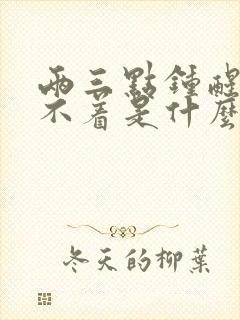 兩三點鍾醒
不着是什麼
冬天的柳葉